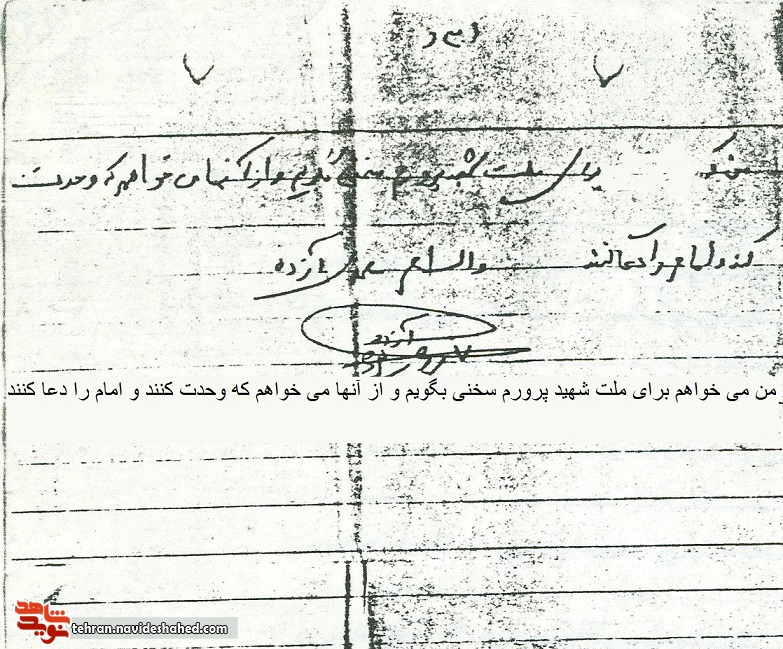 برای ملت شهید پرورم سخنی بگویم و از آنها می خواهم که وحدت
کنند و امام را دعا کنند والسلام
من می خواهم برای ملت شهید پرورم سخنی بگویم و از آنها می خواهم که وحدت کنند و امام را دعا کنند
نوید شاهد
tehran.navideshahed.com